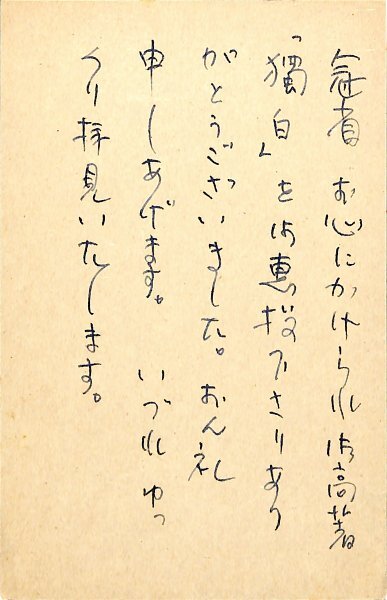 冠省 お心にかけられ御高著
「獨白」を御惠投下さりあり
がとうございました。おん礼
申しあげます。いづれゆっ
くり拝見いたします。